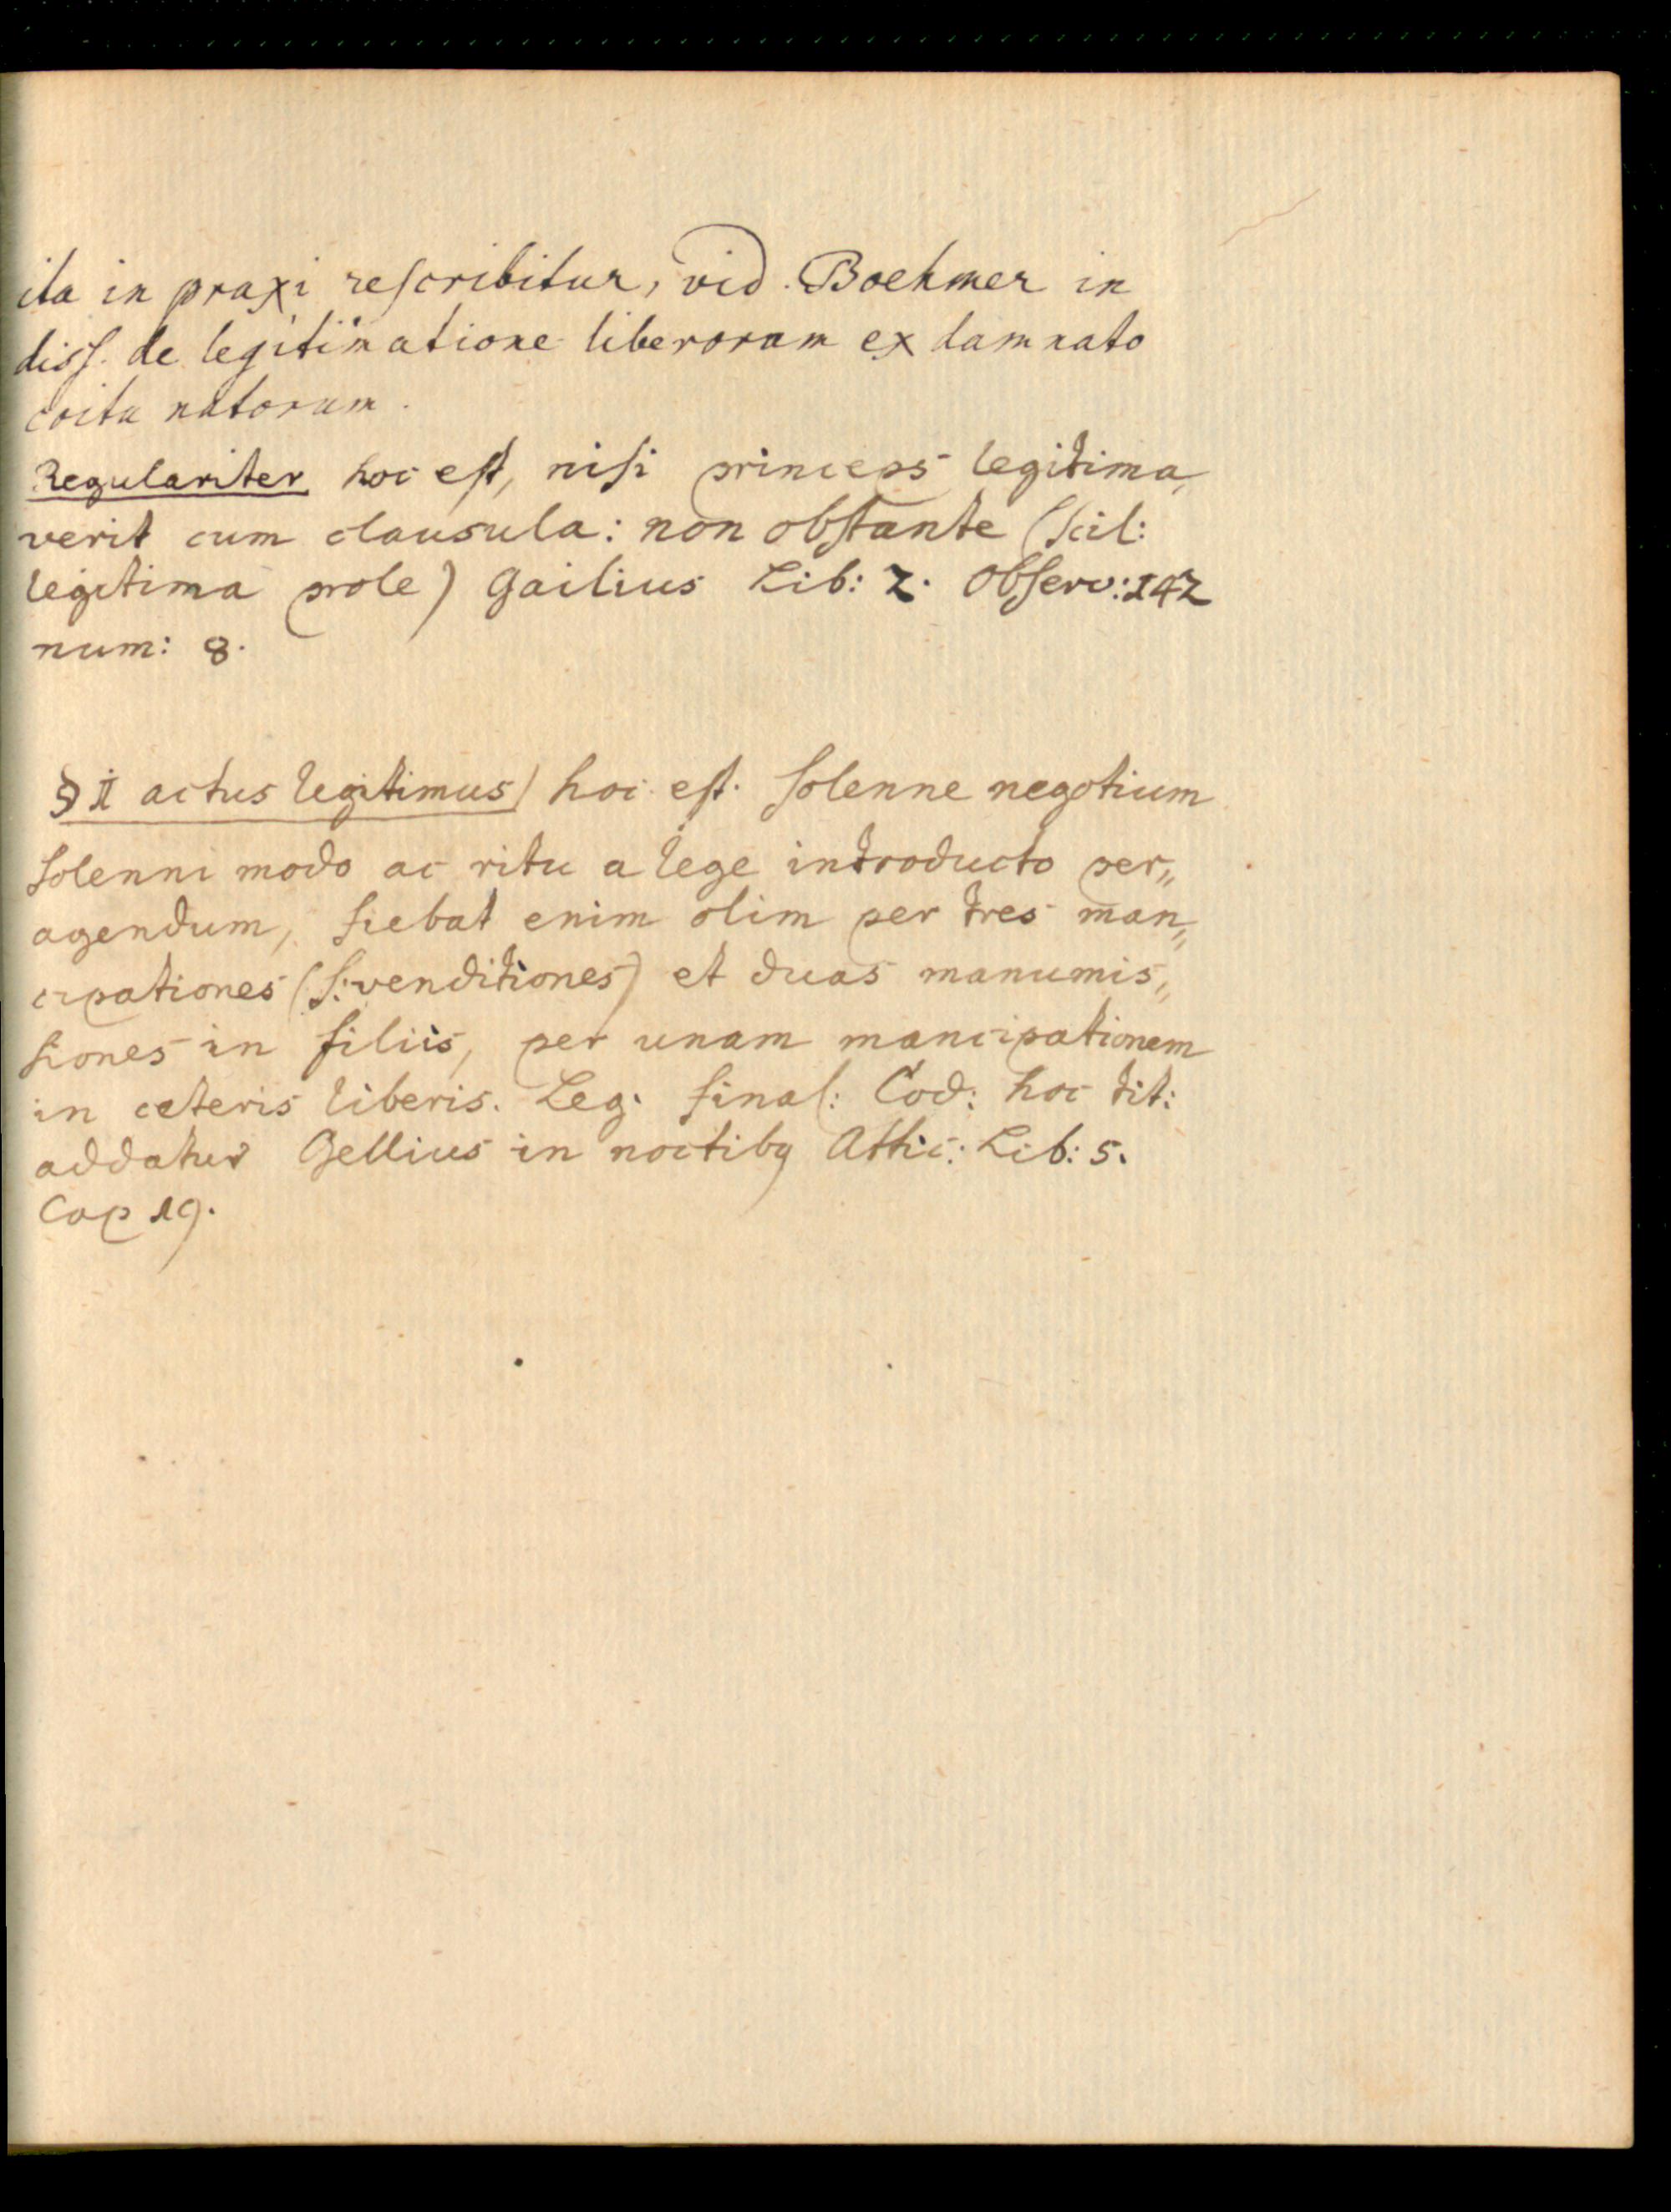 ita in praxi reſcribitur, vid. Boehmer in
diſſ. de legitimatione liberorum ex damnato
coitu natorum.
Regulariter hoc eſt, niſi princeps legitima„
verit cum clausula: non obſtante (ſcil:
legitima prole) Gailius Lib: 2. Obſerv: 142
num: 8.
§ II actus legitimus) hoc eſt. ſolenne negotium
ſolenni modo ac ritu a lege introducto per„
agendum, fiebat enim olim per tres man„
cipationes (ſ: venditiones) et duas manumis„
ſiones in filiis, per unam mancipationem
in ceteris liberis. Leg. final: Cod: hoc tit:
addatur Gellius in noctibq Attic: Lib: 5.
Cap 19.